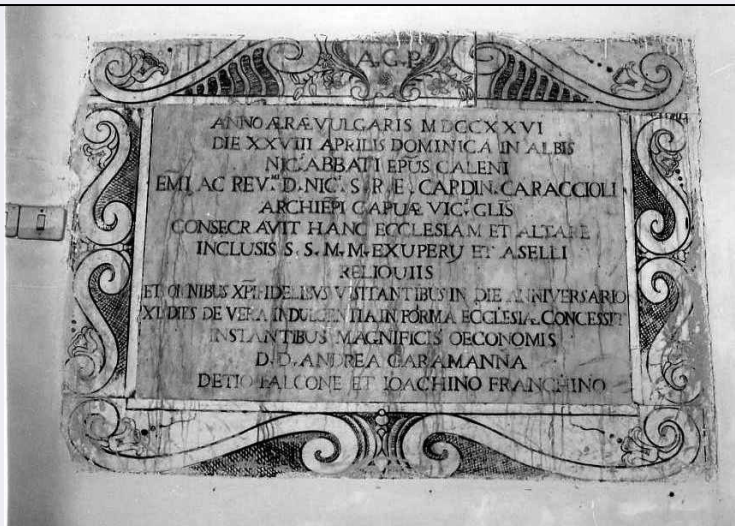 A.G.P.
ANNO ÆRÆ VULGARIS MDCCXXVI
DIE XXVIII APRILIS DOMINICA IN ALBIS
NIC. ABBATI EPUS CALENI
EMI AC REV. D. NIC. S. R. E. CARDIN. CARACCIOLI
ARCHIEPI CAPUÆ VIC. GLIS
CONSECRAVIT HANC ECCLESIAM ET ALTARE
INCLUSIS S. S. M. M. EXUPERIJ ET ASELLI
RELIQUIIS
ET OMNIBUS XPI FIDELIBVS VISITANTIBUS IN DIE ANNIVERSARIO
XL DIES DE VERA INDULGENTIA IN FORMA ECCLESIÆ CONCESSIT
INSTANTIBUS MAGNIFICIS OECONOMIS
D. D. ANDREA CARAMANNA
DETIO FALCONE ET IOACHINO FRANCHINO